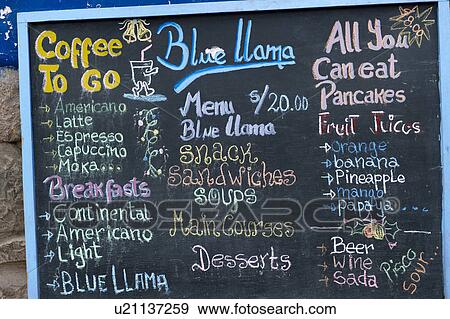 Coffee
To Go
→ Americano
→ Latte
→ Espresso
→ Capuccino
→ Moka
Breakfasts
→ Continental
→ Americano
→ Light
→ BLUE LLAMA
Blue llama
Menu S/20.00
Blue llama
Snack
Sandwiches
Soups
Main Courses
Desserts
All You
Can eat
Pancakes
Fruit Juices
→ Orange
→ banana
→ Pineapple
→ mango
→ Papaya ....
→ Beer
→ Wine
→ Sada
Pisco
Sour...
fotosearch
u21137259 www.fotosearch.com